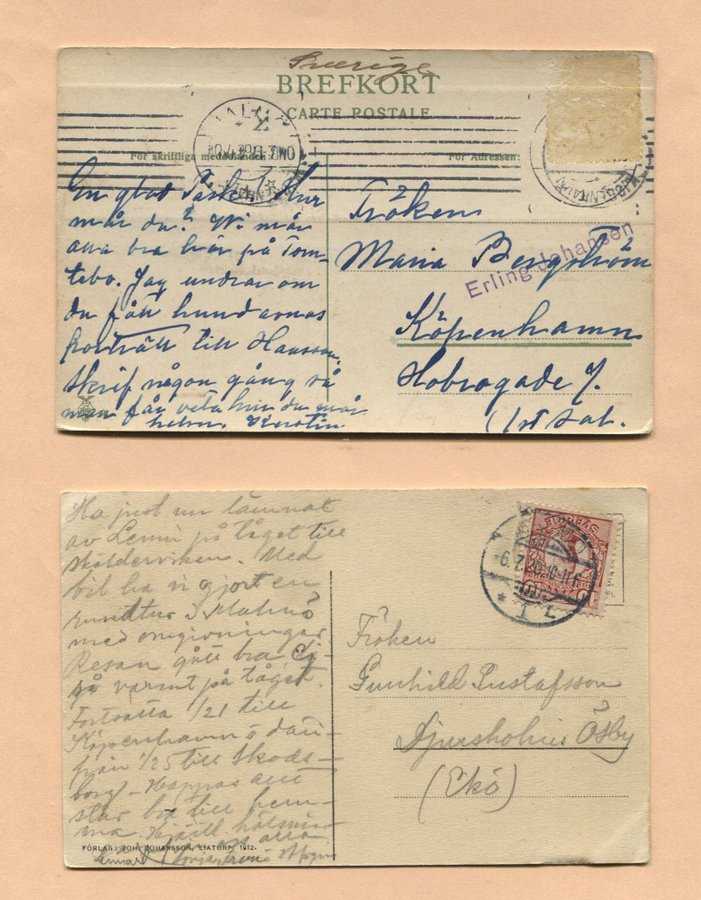 Sverige
BREFKORT
CARTE POSTALE
För skriftliga meddelanden
För Adressen:
En glad Påsk! Hur
mår du? Vi mår
alla bra här på Tom-
tebo. Jag undrar om
du fått hundarnas
porträtt till
Skrif någon gång så
man får veta hur du mår
Kerstin
Fröken
Maria Bergström
Erling Johansen
Köpenhamn
Hobrogade
1st sal.
Ha just nu lämnat
av Lenni på tåget till
Skälderviken. Med
bil ha vi gjort en
rundtur i Malmö
med omgivningar
Resan gått bra Ej
så varmt på tåget.
Fortsätta 1/21 till
Köpenhamn o där-
från 1/25 till Skods-
borg. Hoppas allt
står bra till hem-
ma. Hjärtl hälsnin-
FÖRLAG: JOH. JOHANSSON, LIATORP. 1912.
6.7.26.10-11F
Fröken
Gunhild Gustafsson
Djursholms Ösby
(Ekö)